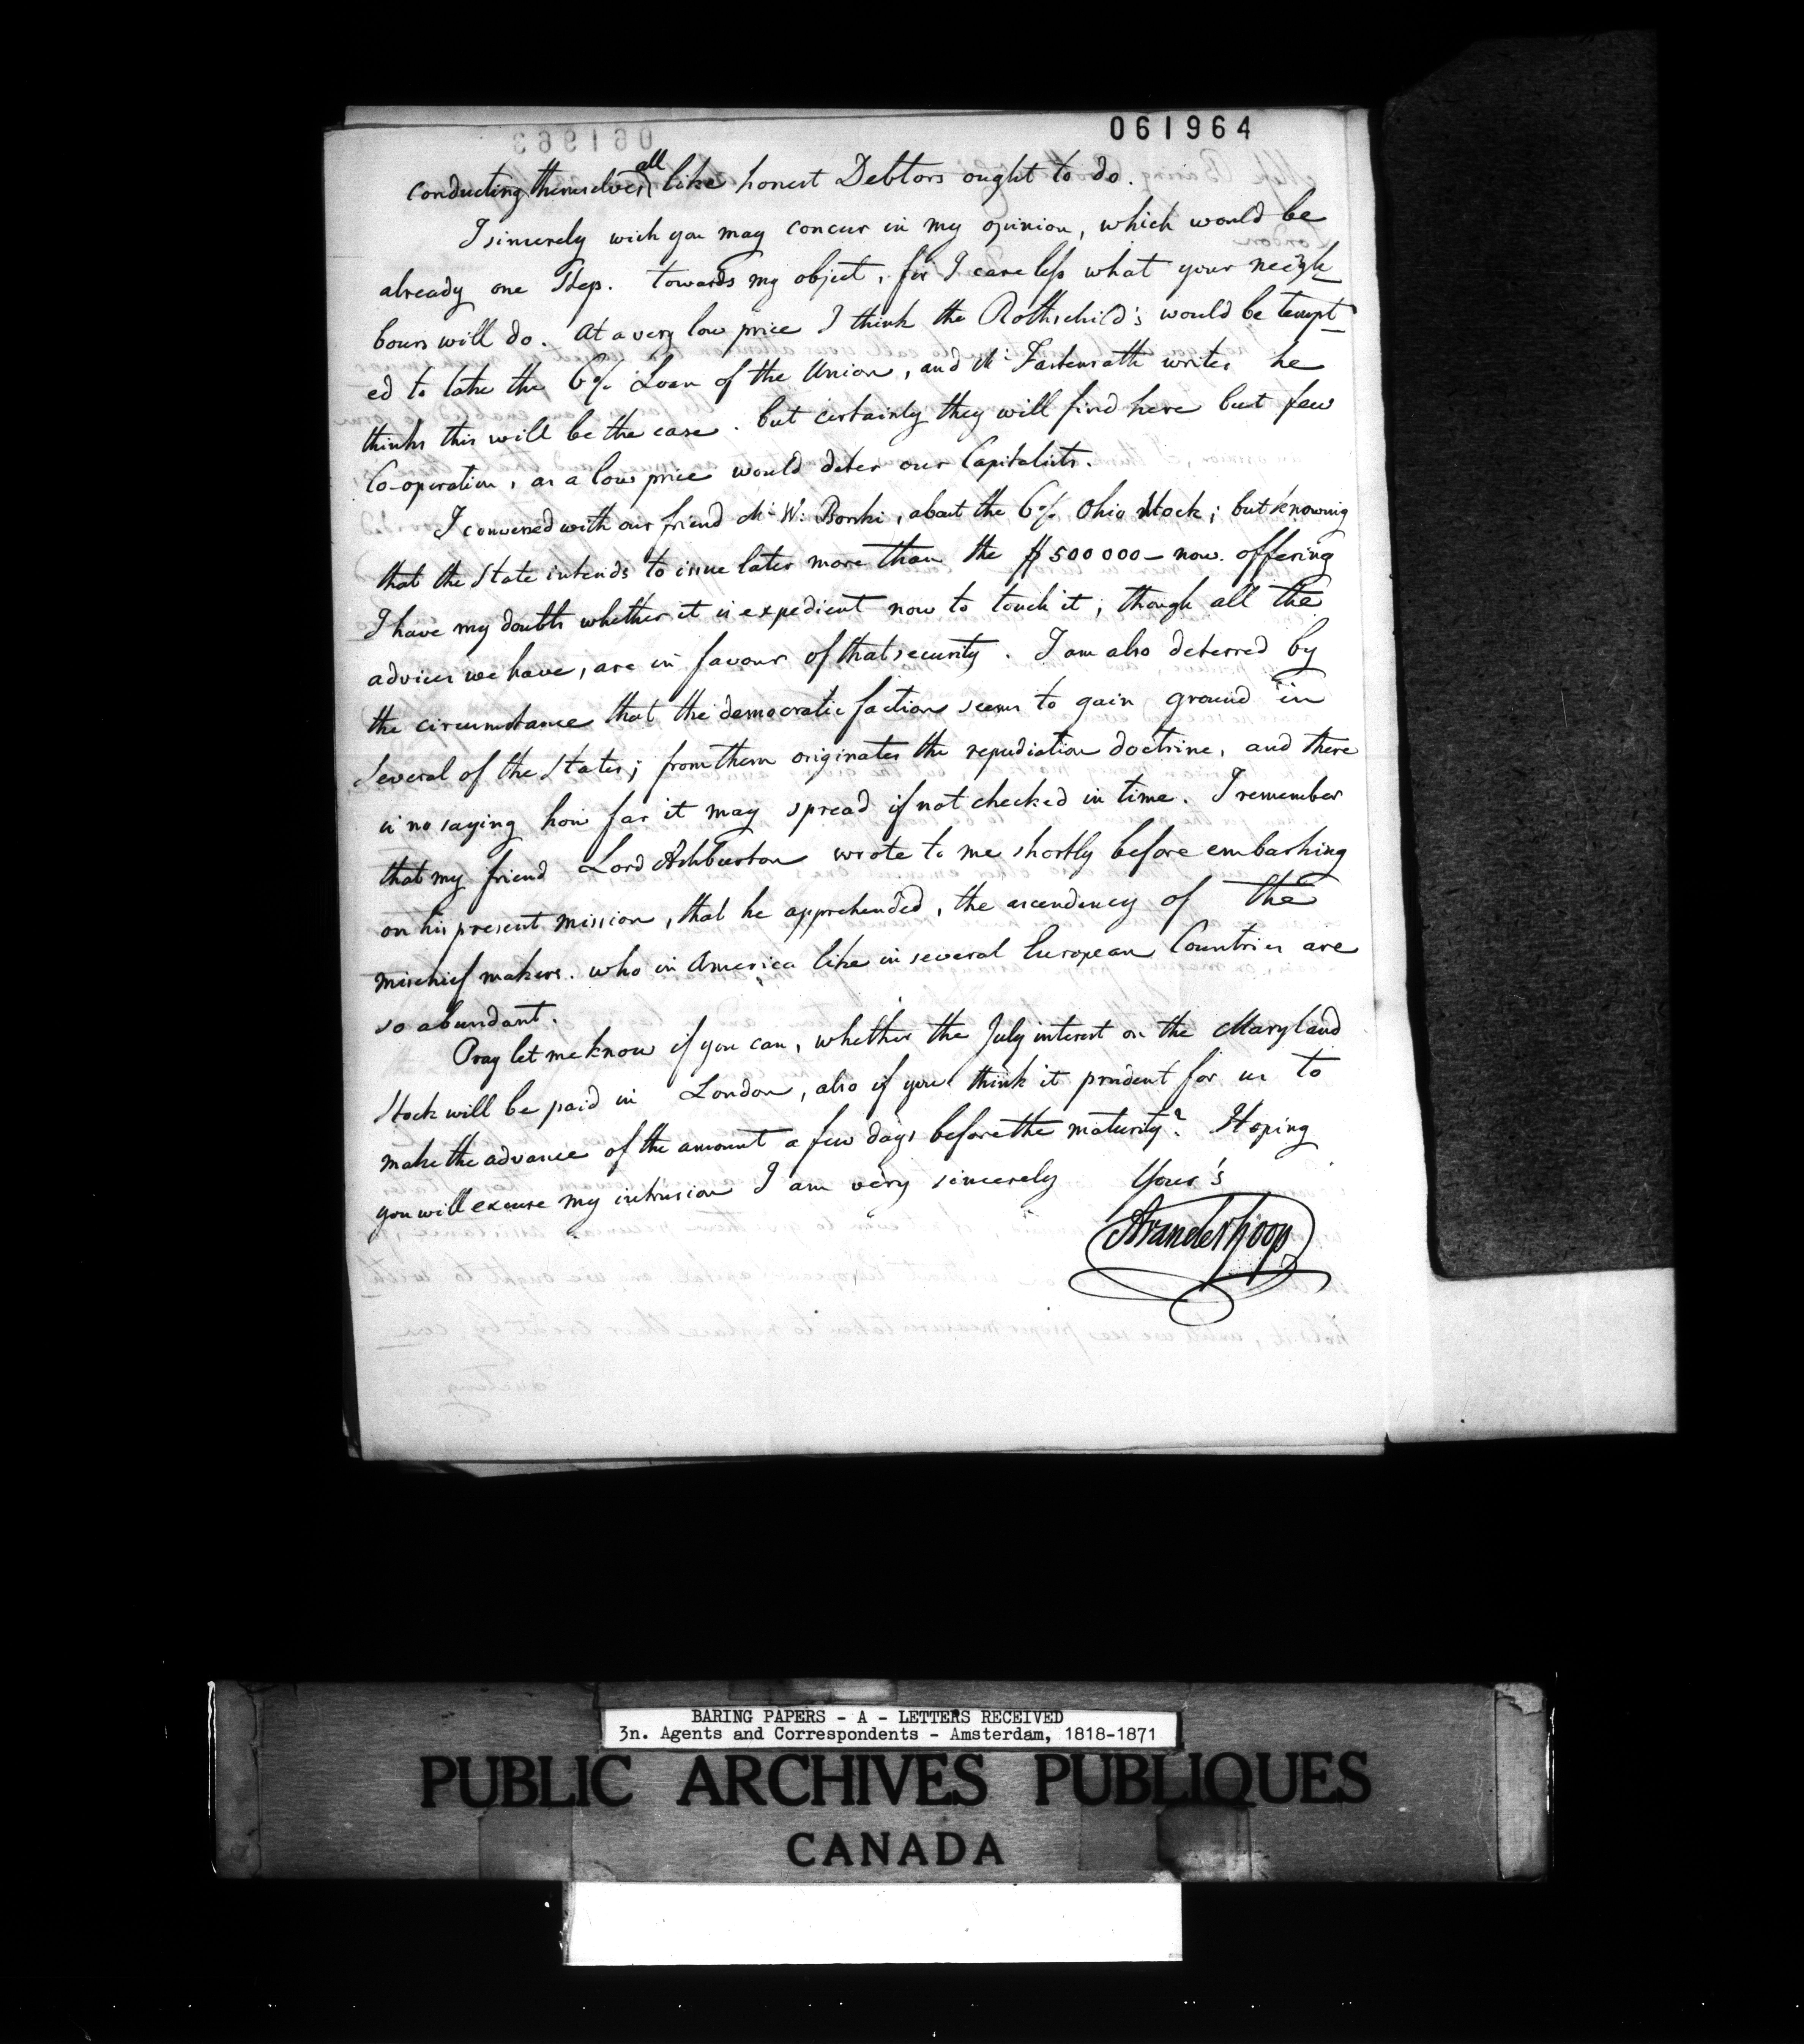 061964
conducting themselves all like honest Debtors ought to do.
I sincerely wish you may concur in my opinion, which would be
already one Step. towards my object, for I care less what your neigh
bours will do. At a very low price I think the Rothschild's would be tempt
ed to take the 6% Loan of the Union, and Mr. Fastenrath writes he
thinks this will be the case. but certainly they will find here but few
Co-operation, as a low price would deter our Capitalists.
I conversed with our friend Mr. W: Borski, about the 6% Ohio Stock; but knowing
that the State intends to issue later more than the $500000- now offering
I have my doubts whether it is expedient now to touch it; though all the
advices we have, are in favour of that security. I am also deterred by
the circumstance that the democratic faction seems to gain ground in
several of the States; from them originates the repudiation doctrine, and there
is no saying how far it may spread if not checked in time. I remember
that my friend Lord Ashburton wrote to me shortly before embarking
on his present mission, that he apprehended, the ascendency of the
mischief makers. who in America like in several European Countries are
so abundant.
Pray let me know if you can, whether the July interest on the Maryland
Stock will be paid in London, also if you think it prudent for us to
make the advance of the amount a few days before the maturity? Hoping
you will excuse my intrusion I am very sincerely Your's
Avanderhoop
BARING PAPERS - A - LETTERS RECEIVED
3n. Agents and Correspondents - Amsterdam, 1818-1871
PUBLIC ARCHIVES PUBLIQUES
CANADA